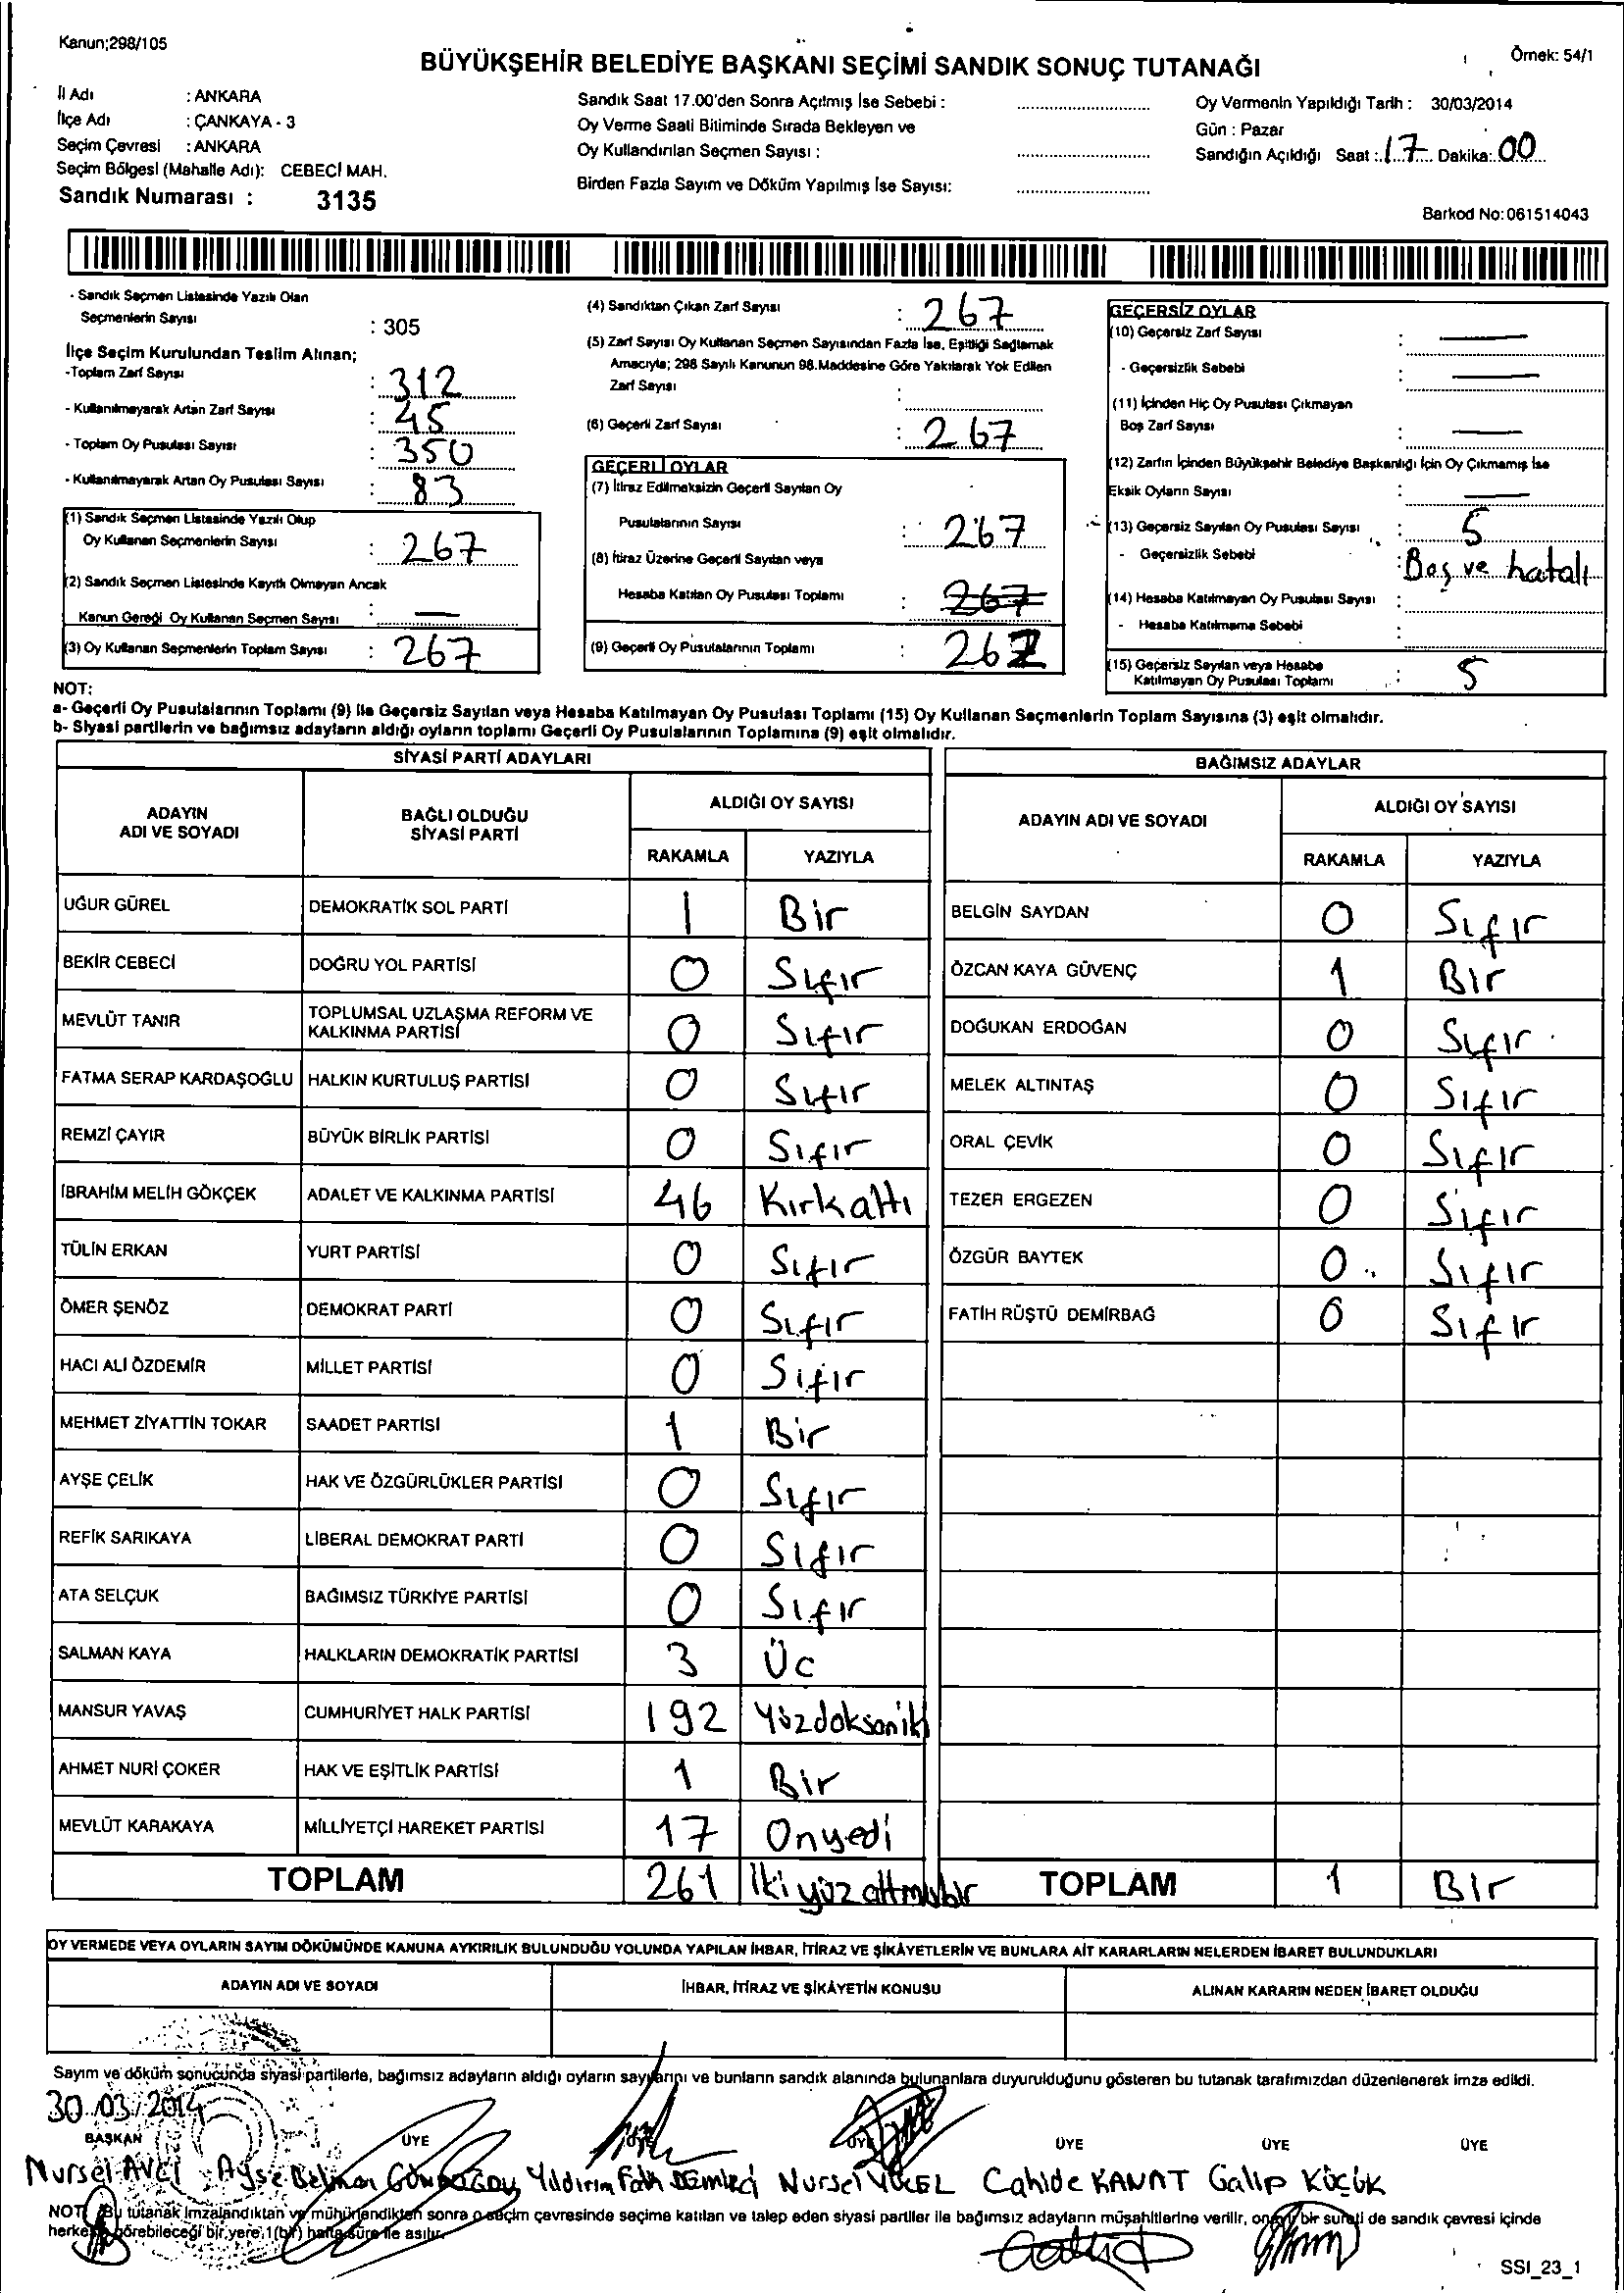 Kanun;298/105
Örnek: 54/1
BÜYÜKŞEHİR BELEDİYE BAŞKANI SEÇİMİ SANDIK SONUÇ TUTANAĞI
İl Adı : ANKARA
İlçe Adı : ÇANKAYA - 3
Seçim Çevresi : ANKARA
Seçim Bölgesi (Mahalle Adı): CEBECİ MAH.
Sandık Numarası : 3135
Sandık Saat 17.00'den Sonra Açılmış İse Sebebi :
Oy Verme Saati Bitiminde Sırada Bekleyen ve
Oy Kullandırılan Seçmen Sayısı :
Birden Fazla Sayım ve Döküm Yapılmış İse Sayısı:
Oy Vermenin Yapıldığı Tarih : 30/03/2014
Gün : Pazar
Sandığın Açıldığı Saat : 17 Dakika: 00
Barkod No:061514043
- Sandık Seçmen Listesinde Yazılı Olan
Seçmenlerin Sayısı : 305
İlçe Seçim Kurulundan Teslim Alınan;
-Toplam Zarf Sayısı : 312
- Kullanılmayarak Artan Zarf Sayısı : 45
- Toplam Oy Pusulası Sayısı : 350
- Kullanılmayarak Artan Oy Pusulası Sayısı : 83
(1) Sandık Seçmen Listesinde Yazılı Olup
Oy Kullanan Seçmenlerin Sayısı : 267
(2) Sandık Seçmen Listesinde Kayıtlı Olmayan Ancak
Kanun Gereği Oy Kullanan Seçmen Sayısı : —
(3) Oy Kullanan Seçmenlerin Toplam Sayısı : 267
(4) Sandıktan Çıkan Zarf Sayısı : 267
(5) Zarf Sayısı Oy Kullanan Seçmen Sayısından Fazla İse, Eşitliği Sağlamak
Amacıyla; 298 Sayılı Kanunun 98.Maddesine Göre Yakılarak Yok Edilen
Zarf Sayısı :
(6) Geçerli Zarf Sayısı : 267
GEÇERLİ OYLAR
(7) İtiraz Edilmeksizin Geçerli Sayılan Oy
Pusulalarının Sayısı : 267
(8) İtiraz Üzerine Geçerli Sayılan veya
Hesaba Katılan Oy Pusulası Toplamı : 267
(9) Geçerli Oy Pusulalarının Toplamı : 262
GEÇERSİZ OYLAR
(10) Geçersiz Zarf Sayısı : —
- Geçersizlik Sebebi : —
(11) İçinden Hiç Oy Pusulası Çıkmayan
Boş Zarf Sayısı : —
(12) Zarfın İçinden Büyükşehir Belediye Başkanlığı İçin Oy Çıkmamış İse
Eksik Oyların Sayısı : —
(13) Geçersiz Sayılan Oy Pusulası Sayısı : 5
- Geçersizlik Sebebi : Boş ve hatalı
(14) Hesaba Katılmayan Oy Pusulası Sayısı :
- Hesaba Katılmama Sebebi :
(15) Geçersiz Sayılan veya Hesaba
Katılmayan Oy Pusulası Toplamı : 5
NOT:
a- Geçerli Oy Pusulalarının Toplamı (9) ile Geçersiz Sayılan veya Hesaba Katılmayan Oy Pusulası Toplamı (15) Oy Kullanan Seçmenlerin Toplam Sayısına (3) eşit olmalıdır.
b- Siyasi partilerin ve bağımsız adayların aldığı oyların toplamı Geçerli Oy Pusulalarının Toplamına (9) eşit olmalıdır.
SİYASİ PARTİ ADAYLARI
ADAYIN ADI VE SOYADI BAĞLI OLDUĞU SİYASİ PARTİ ALDIĞI OY SAYISI
RAKAMLA YAZIYLA
UĞUR GÜREL DEMOKRATİK SOL PARTİ 1 Bir
BEKİR CEBECİ DOĞRU YOL PARTİSİ 0 Sıfır
MEVLÜT TANIR TOPLUMSAL UZLAŞMA REFORM VE KALKINMA PARTİSİ 0 Sıfır
FATMA SERAP KARDAŞOĞLU HALKIN KURTULUŞ PARTİSİ 0 Sıfır
REMZİ ÇAYIR BÜYÜK BİRLİK PARTİSİ 0 Sıfır
İBRAHİM MELİH GÖKÇEK ADALET VE KALKINMA PARTİSİ 46 Kırkaltı
TÜLİN ERKAN YURT PARTİSİ 0 Sıfır
ÖMER ŞENÖZ DEMOKRAT PARTİ 0 Sıfır
HACI ALİ ÖZDEMİR MİLLET PARTİSİ 0 Sıfır
MEHMET ZİYATTİN TOKAR SAADET PARTİSİ 1 Bir
AYŞE ÇELİK HAK VE ÖZGÜRLÜKLER PARTİSİ 0 Sıfır
REFİK SARIKAYA LİBERAL DEMOKRAT PARTİ 0 Sıfır
ATA SELÇUK BAĞIMSIZ TÜRKİYE PARTİSİ 0 Sıfır
SALMAN KAYA HALKLARIN DEMOKRATİK PARTİSİ 3 Üc
MANSUR YAVAŞ CUMHURİYET HALK PARTİSİ 192 Yüzdoksaniki
AHMET NURİ ÇOKER HAK VE EŞİTLİK PARTİSİ 1 Bir
MEVLÜT KARAKAYA MİLLİYETÇİ HAREKET PARTİSİ 17 Onyedi
TOPLAM 261 İkiyüzaltmışbir
BAĞIMSIZ ADAYLAR
ADAYIN ADI VE SOYADI ALDIĞI OY SAYISI
RAKAMLA YAZIYLA
BELGİN SAYDAN 0 Sıfır
ÖZCAN KAYA GÜVENÇ 1 Bir
DOĞUKAN ERDOĞAN 0 Sıfır
MELEK ALTINTAŞ 0 Sıfır
ORAL ÇEVİK 0 Sıfır
TEZER ERGEZEN 0 Sıfır
ÖZGÜR BAYTEK 0 Sıfır
FATİH RÜŞTÜ DEMİRBAĞ 0 Sıfır
TOPLAM 1 Bir
OY VERMEDE VEYA OYLARIN SAYIM DÖKÜMÜNDE KANUNA AYKIRILIK BULUNDUĞU YOLUNDA YAPILAN İHBAR, İTİRAZ VE ŞİKÂYETLERİN VE BUNLARA AİT KARARLARIN NELERDEN İBARET BULUNDUKLARI
ADAYIN ADI VE SOYADI İHBAR, İTİRAZ VE ŞİKÂYETİN KONUSU ALINAN KARARIN NEDEN İBARET OLDUĞU
Sayım ve döküm sonucunda siyasi partilerle, bağımsız adayların aldığı oyların sayılarını ve bunların sandık alanında bulunanlara duyurulduğunu gösteren bu tutanak tarafımızdan düzenlenerek imza edildi.
30/03/2014
BAŞKAN ÜYE ÜYE ÜYE ÜYE ÜYE ÜYE
Nursel AVCI Ayşe Yıldırım Fatih Nursel YÜCEL Cahide KANAT Galip KÜÇÜK
NOT: Bu tutanak imzalandıktan ve mühürlendikten sonra o seçim çevresinde seçime katılan ve talep eden siyasi partiler ile bağımsız adayların müşahitlerine verilir, onaylı bir sureti de sandık çevresi içinde
herkesin görebileceği bir yere,1(bir) hafta süre ile asılır.
SSI_23_1